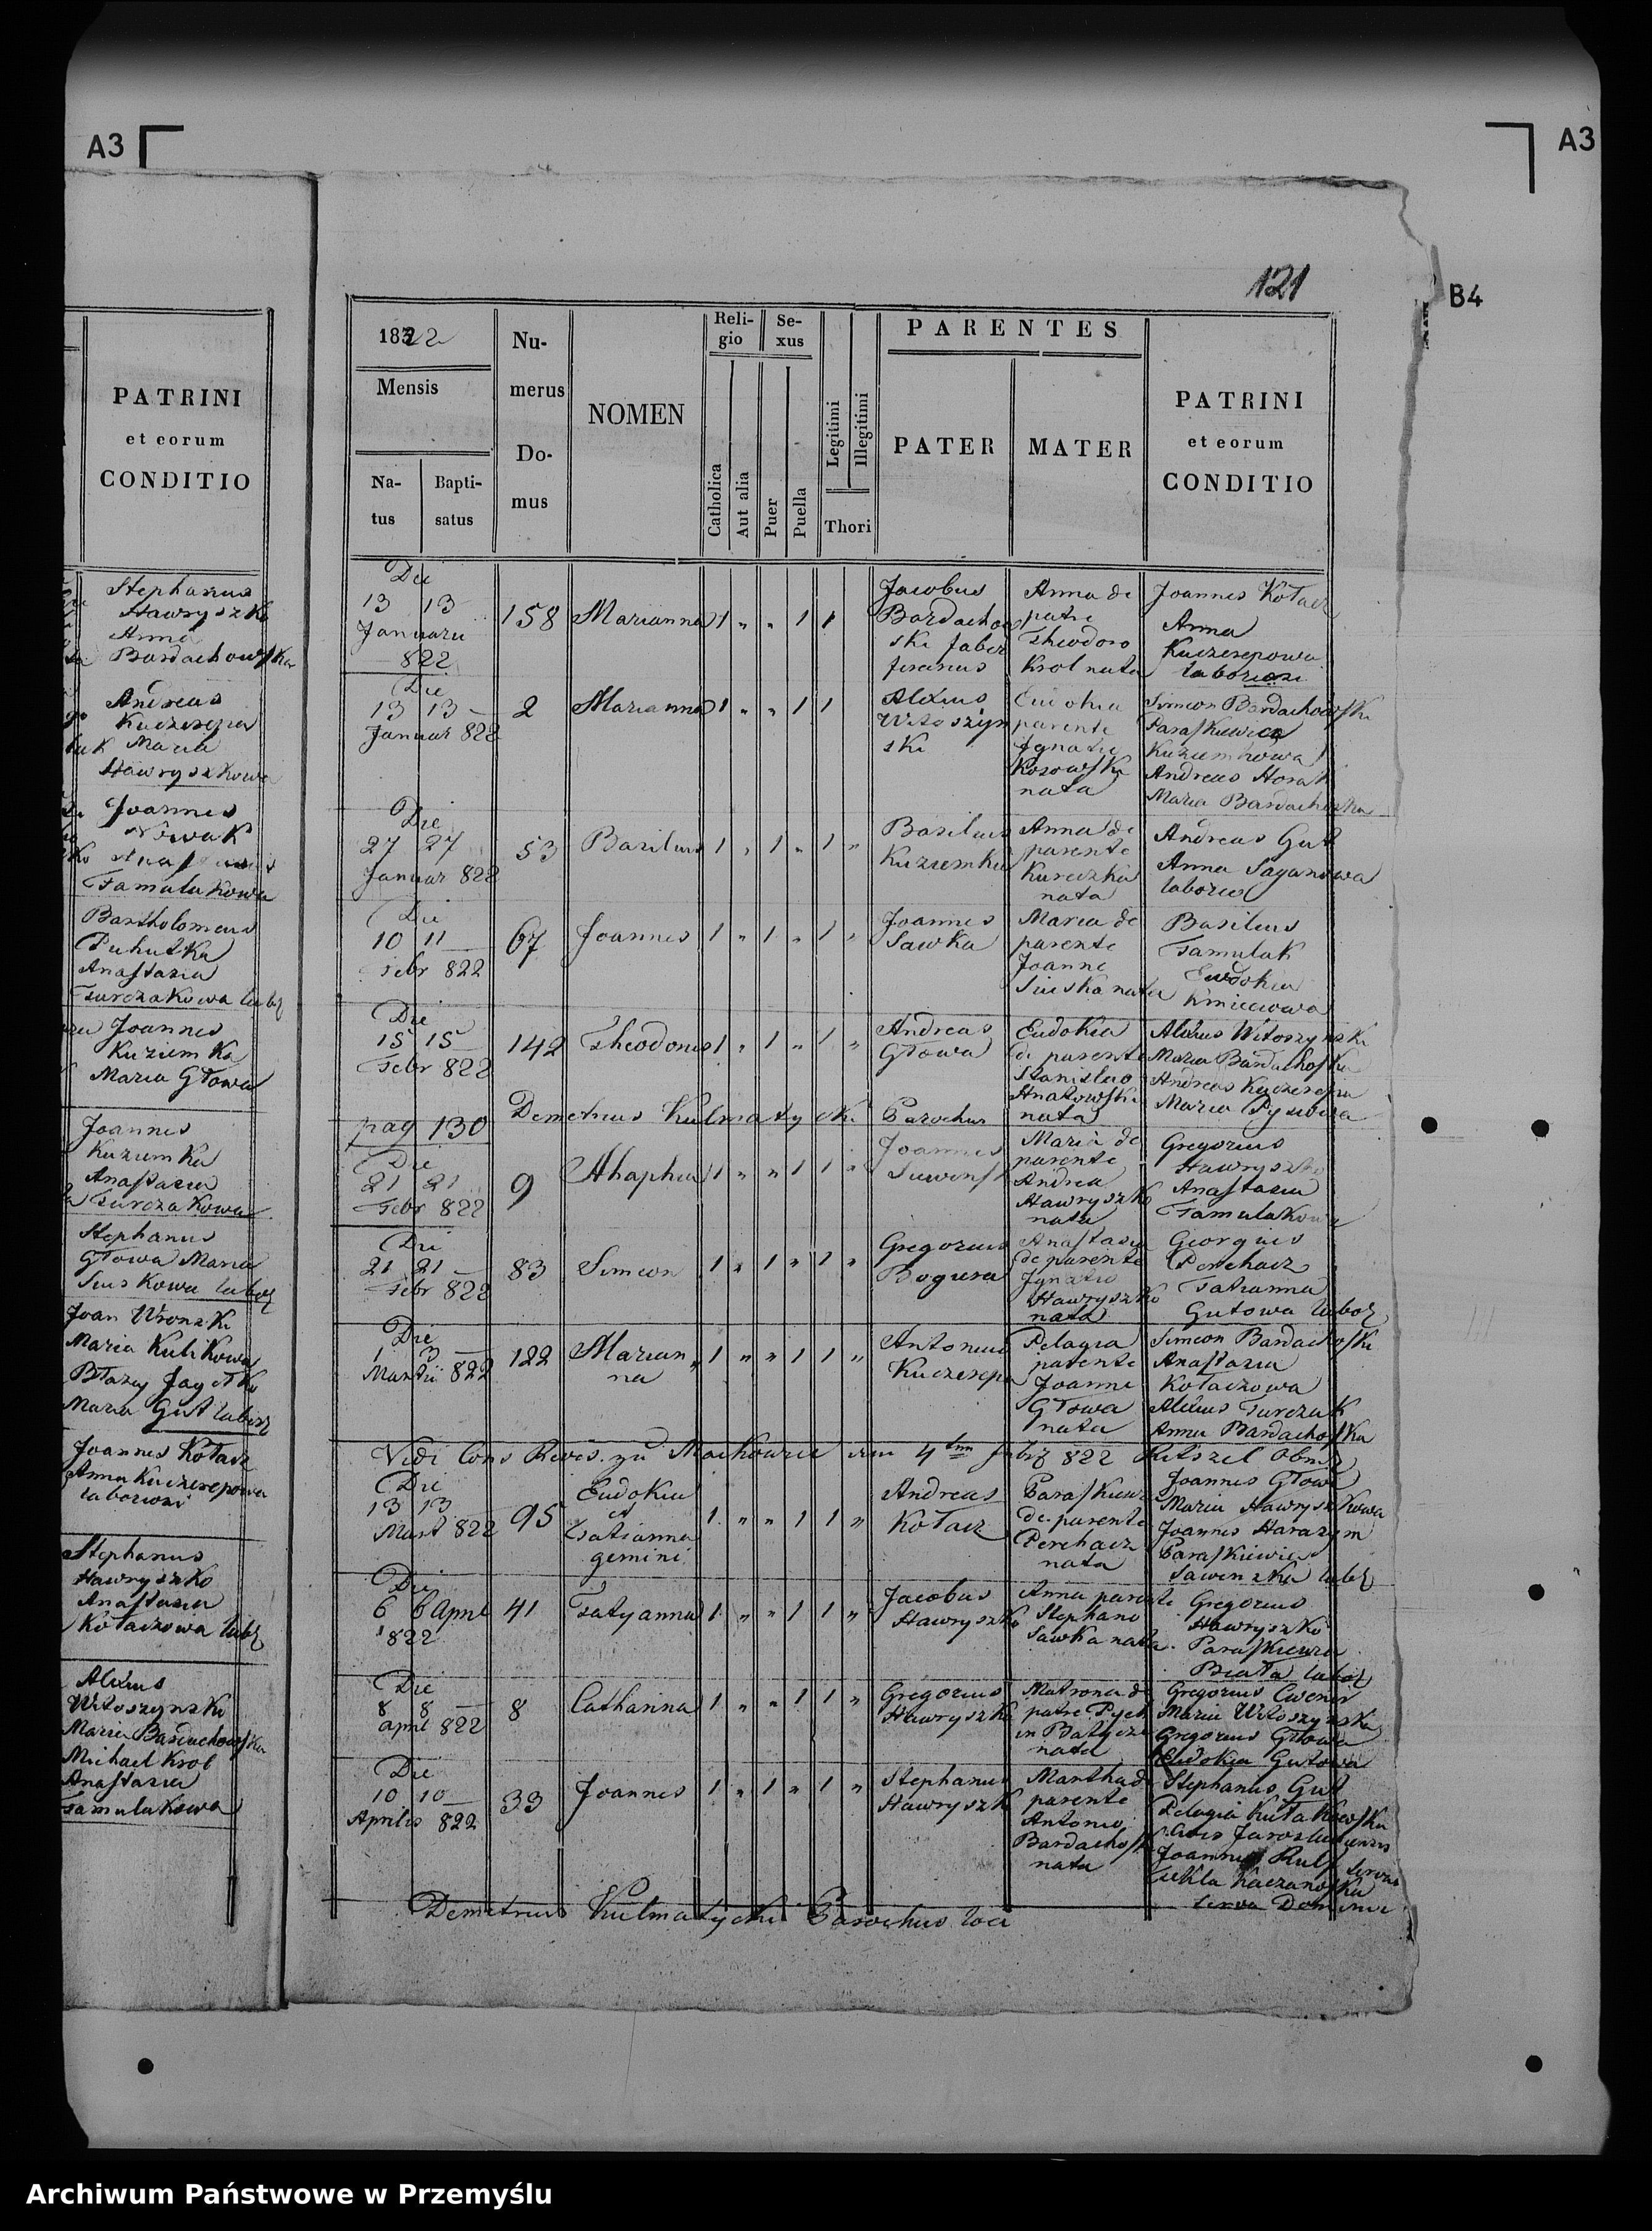 A3
A3
B4
121
PATRINI
et eorum
CONDITIO
Stephanus
Hawryszko
Anna
Bardachowska
Andreas
Kuczerepa
Maria
Hawryszkowa
Joannes
Nowak
Famulakowa
Bartholomeus
Puhutka
Anastasia
Turczakowa
Joannes
Kuziemka
Maria Głowa
Joannes
Kuziemka
Anastasia
Turczakowa
Stephanus
Głowa Maria
Suskowa labor
Joan Wronski
Maria Kulikowa
Błazej
Maria Gut labor
Joannes Kołacz
Anna Kuczerepowa
laboriosi
Stephanus
Hawryszko
Anastasia
Kołaczowa labor
Alexius
Witoszynski
Maria Bardachowska
Michael Krol
Anastasia
Famulakowa
1822
Mensis
Na-
tus
Bapti-
satus
Nu-
merus
Do-
mus
NOMEN
Reli-
gio
Catholica
Aut alia
Se-
xus
Puer
Puella
Legitimi
Illegitimi
Thori
PARENTES
PATER
MATER
PATRINI
et eorum
CONDITIO
Die
13 13
Januarii
822
158
Marianna
1 " " 1 1
Jacobus
Bardachow
ski faber
Anna de
patre
Theodoro
Krol nata
Joannes Kołacz
Anna
Kuczerepowa
laboriosi
Die
13 13
Januar 822
2
Marianna
1 " " 1 1
Alexius
Witoszyn
ski
Eudokia
parente
Ignatio
Kosowska
nata
Simeon Bardachowski
Paraskiewia
Kuziemkowa
Andreas Horak
Maria Bardachoska
Die
27 27
Januar 822
53
Basilius
1 " 1 " 1 "
Basilius
Kuziemka
Anna de
parente
Kureczka
nata
Andreas Gut
Anna Saganowa
labor
Die
10 11
Febr 822
67
Joannes
1 " 1 " 1 "
Joannes
Sawka
Maria de
parente
Joanne
Suska nata
Basilius
Famulak
Ewdokia
Kmiecowa
Die
15 15
Febr 822
142
Theodorus
1 " 1 " 1 "
Andreas
Głowa
Eudokia
de parente
Stanislao
Hnatowski
nata
Alexius Witoszynski
Maria Bardachoska
Andreas Kuczerepa
Maria
pag 130
Demetrius Kulmatycki Parochus
Die
21 21
Febr 822
9
Ahaphia
1 " " 1 1 "
Joannes
Maria de
parente
Andrea
Hawryszko
nata
Gregorius
Hawryszko
Anastasia
Famulakowa
Die
21 21
Febr 822
83
Simeon
1 " 1 " 1 "
Gregorius
Bogusa
Anastasia
de parente
Ignatio
Hawryszko
nata
Georgius
Perchacz
Tatianna
Gutowa labor
Die
1 3
Martii 822
122
Marian
na
1 " " 1 1 "
Antonius
Kuczerepa
Pelagia
parente
Joanne
Głowa
nata
Simeon Bardachoski
Anastasia
Kołaczowa
Alexius Turczak
Anna Bardachoska
Vidi Cons Revis. zu Mackowice 822
Die
13 13
Mart 822
95
Eudokia
et
Tatianna
gemini
1 " " 1 1 "
Andreas
Kołacz
Paraskiewia
de parente
Perchacz
nata
Joannes Głowa
Maria Hawryszkowa
Joannes Harazym
Paraskiewia
Die
6 6 April
822
41
Tatyanna
1 " " 1 1 "
Jacobus
Hawryszko
Anna parente
Stephano
Sawka nata
Gregorius
Hawryszko
Paraskiewia
Biała labor
Die
8 8
April 822
8
Catharina
1 " " 1 1 "
Gregorius
Hawryszko
Matrona de
patre Pych
in Batycze
nata
Gregorius
Maria Witoszynska
Gregorius Głowa
Eudokia Gutowa
Die
10 10
Aprilis 822
33
Joannes
1 " 1 " 1 "
Stephanus
Hawryszk
Martha de
parente
Antonio
Bardachosk
nata
Stephanus Gut
Pelagia Kułakowska
Joannes
Tekla Kaczanoska
serva
Demetrius Kulmatycki Parochus loci
Archiwum Państwowe w Przemyślu